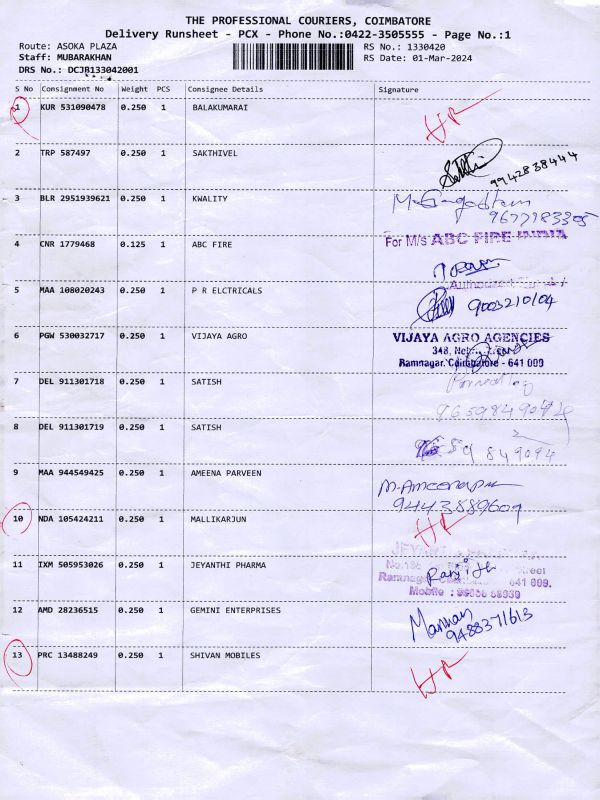 THE PROFESSIONAL COURIERS, COIMBATORE
Delivery Runsheet - PCX - Phone No.:0422-3505555 - Page No.:1
Route: ASOKA PLAZA RS No.: 1330420
Staff: MUBARAKHAN RS Date: 01-Mar-2024
DRS No.: DCJB133042001
S No Consignment No Weight PCS Consignee Details Signature
1 KUR 531090478 0.250 1 BALAKUMARAI
2 TRP 587497 0.250 1 SAKTHIVEL
9942838444
3 BLR 2951939621 0.250 1 KWALITY
9677183305
4 CNR 1779468 0.125 1 ABC FIRE For M/s ABC FIRE INDIA
5 MAA 108020243 0.250 1 P R ELCTRICALS
9003210104
6 PGW 530032717 0.250 1 VIJAYA AGRO VIJAYA AGRO AGENCIES
348,
Ramnagar, Coimbatore - 641 009
7 DEL 911301718 0.250 1 SATISH
8 DEL 911301719 0.250 1 SATISH
849094
9 MAA 944549425 0.250 1 AMEENA PARVEEN
9443889609
10 NDA 105424211 0.250 1 MALLIKARJUN
11 IXM 505953026 0.250 1 JEYANTHI PHARMA
Ranjith
641 009.
Mobile :
12 AMD 28236515 0.250 1 GEMINI ENTERPRISES
9488371613
13 PRC 13488249 0.250 1 SHIVAN MOBILES